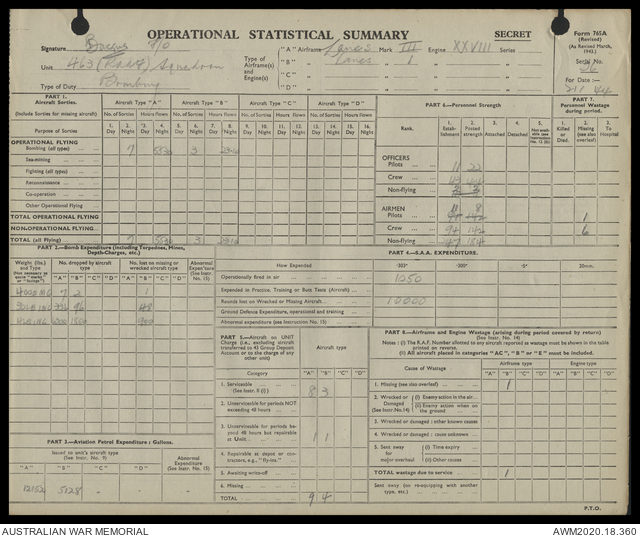 OPERATIONAL STATISTICAL SUMMARY
SECRET
Form 765A
(Revised)
(As Revised March, 1943.)
Signature
F/O
Unit 463 (RAAF) Squadron
Type of Duty Bombing
Type of Airframe(s) and Engine(s)
"A" Airframe Lancs Mark III Engine XXVIII Series
"B" Lancs 1
"C"
"D"
Serial No. 26
For Date:—
PART 1.
Aircraft Sorties.
(Include Sorties for missing aircraft)
Aircraft Type "A" Aircraft Type "B" Aircraft Type "C" Aircraft Type "D"
No. of Sorties Hours Flown No. of Sorties Hours Flown No. of Sorties Hours Flown No. of Sorties Hours Flown
Purpose of Sorties
1. Day 2. Night 3. Day 4. Night 5. Day 6. Night 7. Day 8. Night 9. Day 10. Night 11. Day 12. Night 13. Day 14. Night 15. Day 16. Night
OPERATIONAL FLYING
Bombing (all types) 7 3
Sea-mining
Fighting (all types)
Reconnaissance
Co-operation
Other Operational Flying
TOTAL OPERATIONAL FLYING
NON-OPERATIONAL FLYING
TOTAL (all flying) 7 3
PART 6.—Personnel Strength
PART 7.
Personnel Wastage during period.
Rank.
1. Establishment
2. Posted strength
3. Attached
4. Detached
1. Killed or Died.
2. Missing (see also overleaf)
3. To Hospital
OFFICERS
Pilots 11 22
Crew
Non-flying
AIRMEN
Pilots 1
Crew 94 142 6
Non-flying
PART 2.—Bomb Expenditure (including Torpedoes, Mines, Depth-Charges, etc.)
Weight (lbs.) and Type
No. dropped by aircraft type
No. lost on missing or wrecked aircraft type
Abnormal Expend'ture (See Instr. 15)
"A" "B" "C" "D" "A" "B" "C" "D"
4000 MC 7 2 1
30LB INC 336 96 48
4LB INC 900
PART 4.—S.A.A. EXPENDITURE.
How Expended
·303" ·300" ·5" 20mm.
Operationally fired in air 1050
Expended in Practice, Training or Butt Tests (Aircraft)
Rounds lost on Wrecked or Missing Aircraft 10000
Ground Defence Expenditure, operational and training
Abnormal expenditure (see Instruction No. 15)
PART 5.
Aircraft on UNIT Charge (i.e., excluding aircraft transferred to 43 Group Deposit Account or to the charge of any other unit)
Aircraft type
Category "A" "B" "C" "D"
1. Serviceable (See Instr. 8 (i)) 8 3
2. Unserviceable for periods NOT exceeding 48 hours
3. Unserviceable for periods beyond 48 hours but repairable at Unit 1 1
4. Repairable at depot or contractors, e.g., "fly-ins."
5. Awaiting write-off
6. Missing
TOTAL 9 4
PART 8.—Airframe and Engine Wastage (arising during period covered by return)
Notes: (i) The R.A.F. Number allotted to any aircraft reported as wastage must be shown in the table printed on reverse.
(ii) All aircraft placed in categories "AC", "B" or "E" must be included.
Cause of Wastage
Airframe type Engine type
"A" "B" "C" "D" "A" "B" "C" "D"
1. Missing (see also overleaf) 1
2. Wrecked or Damaged (See Instr. No.14)
(i) Enemy action in the air
(ii) Enemy action when on the ground
3. Wrecked or damaged: other known causes
4. Wrecked or damaged: cause unknown
5. Sent away for major overhaul
(i) Time expiry
(ii) Other causes
TOTAL wastage due to service 1
Sent away (on re-equipping with another type, etc.)
PART 3.—Aviation Petrol Expenditure: Gallons.
Issued to unit's aircraft type (See Instr. No. 9)
Abnormal Expenditure (See Instr. No. 15)
"A" "B" "C" "D"
12152 5128
P.T.O.
AUSTRALIAN WAR MEMORIAL
AWM2020.18.360